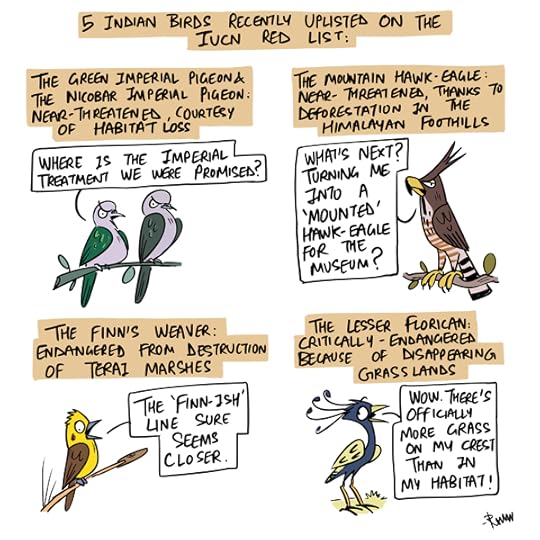 5 INDIAN BIRDS RECENTLY UPLISTED ON THE
IUCN RED LIST:
THE GREEN IMPERIAL PIGEON &
THE NICOBAR IMPERIAL PIGEON:
NEAR-THREATENED, COURTESY
OF HABITAT LOSS
WHERE IS THE IMPERIAL
TREATMENT WE WERE PROMISED?
THE MOUNTAIN HAWK-EAGLE:
NEAR-THREATENED, THANKS TO
DEFORESTATION IN THE
HIMALAYAN FOOTHILLS
WHAT'S NEXT?
TURNING ME
INTO A
'MOUNTED'
HAWK-EAGLE
FOR THE
MUSEUM?
THE FINN'S WEAVER:
ENDANGERED FROM DESTRUCTION
OF TERAI MARSHES
THE 'FINN-ISH'
LINE SURE
SEEMS
CLOSER.
THE LESSER FLORICAN:
CRITICALLY-ENDANGERED
BECAUSE OF DISAPPEARING
GRASSLANDS
WOW. THERE'S
OFFICIALLY
MORE GRASS
ON MY CREST
THAN IN
MY HABITAT!